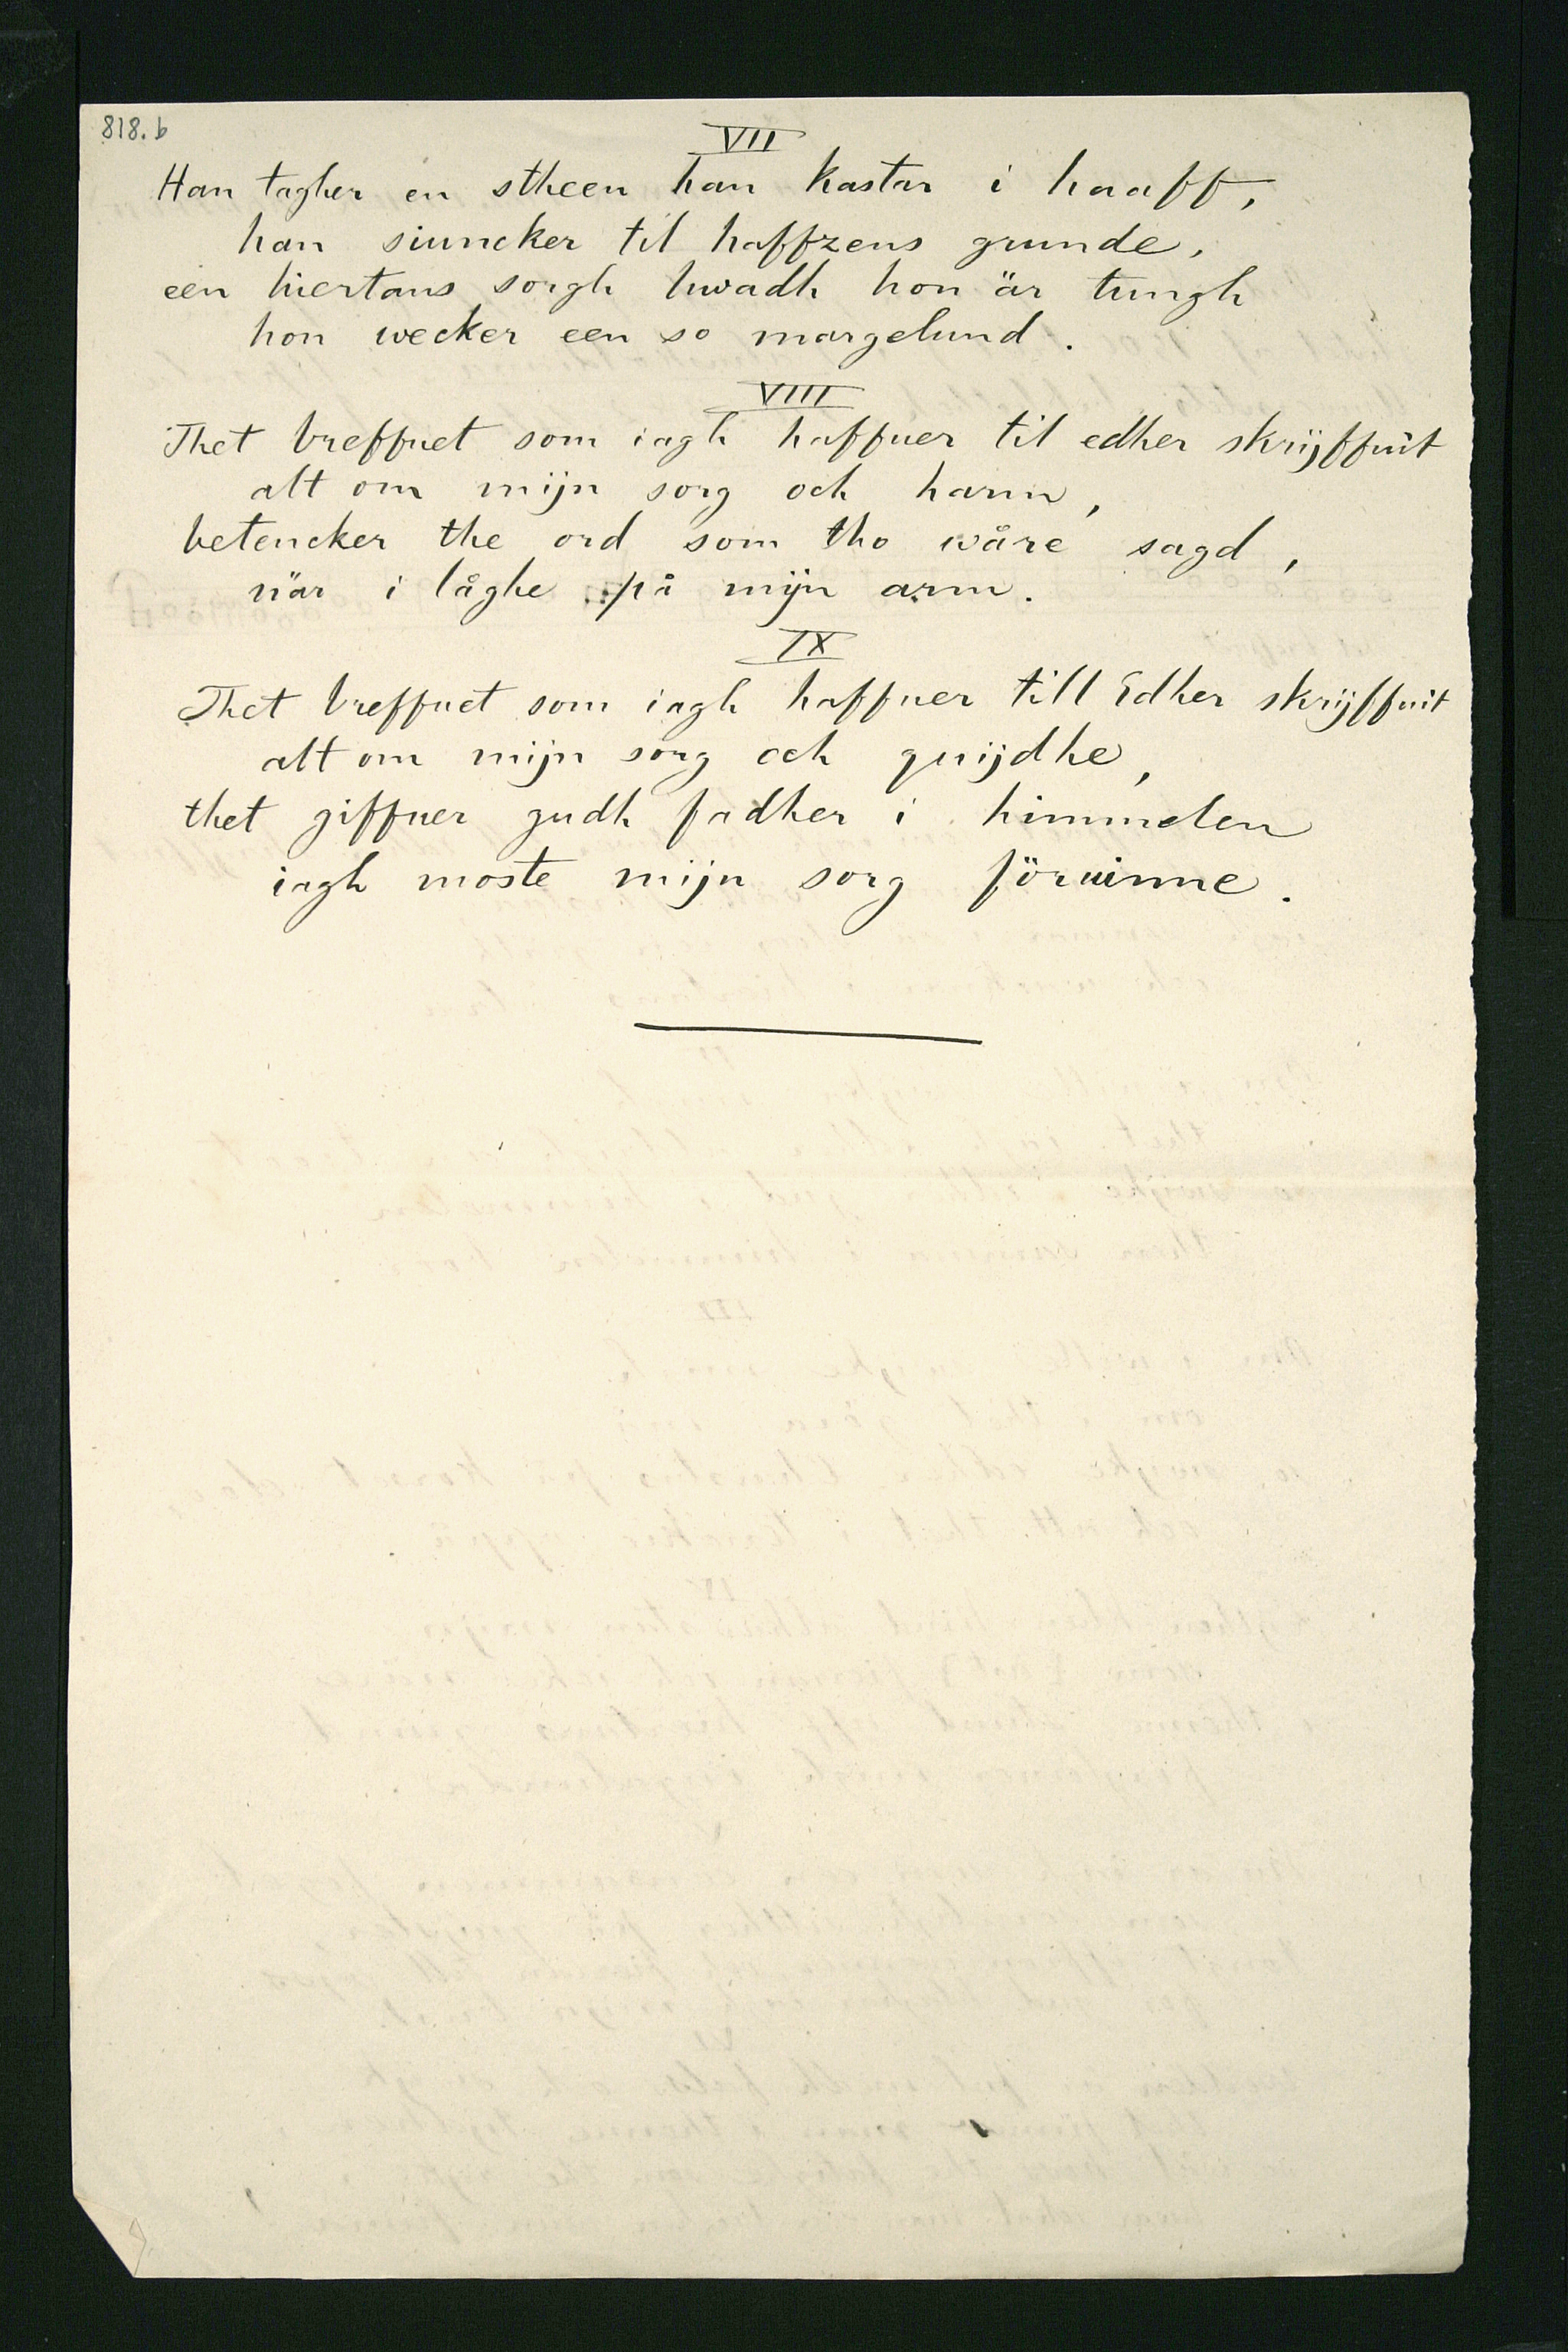 818.b
VII
Han tagher en stheen han kastar i haaff,
han siuncker til haffzens grunde,
een hiertans sorgh hwadh hon är tungh
hon wecker een so margelund.
VIII
Thet breffuet som iagh haffuer til edher skrijffuit
alt om mijn sorg och harm,
betencker the ord som tho wåre sagd,
när i låghe på mijn arm.
IX
Thet breffuet som iagh haffuer till Edher skrijffuit
alt om mijn sorg och quijdhe,
thet giffuer gudh fadher i himmelen
iagh moste mijn sorg föruinne.